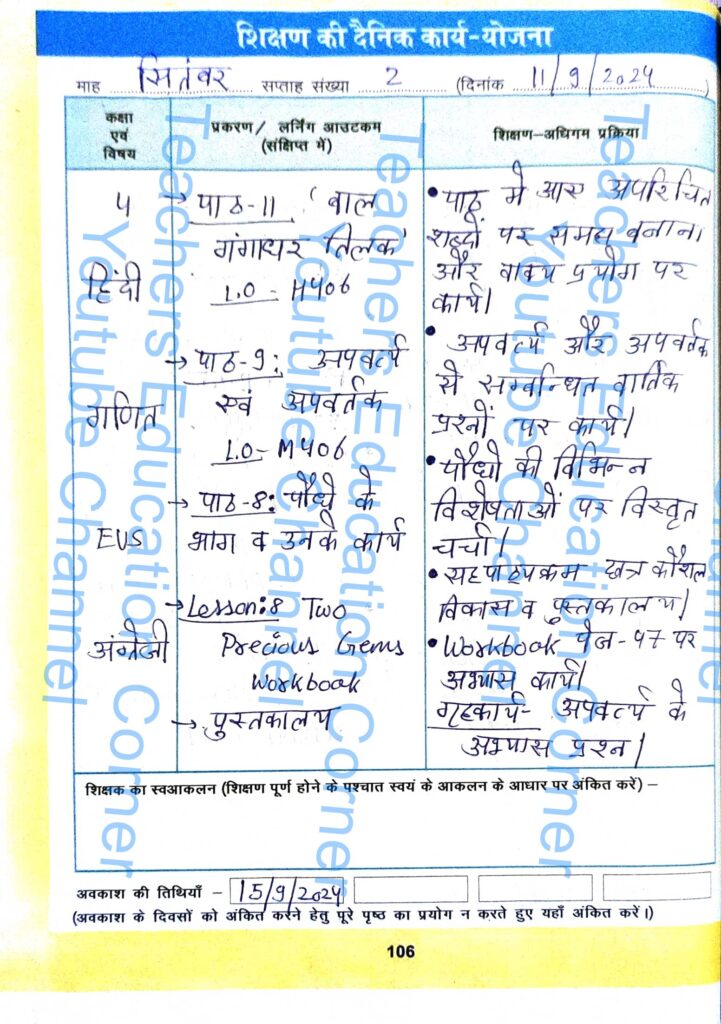 शिक्षण की दैनिक कार्य-योजना
माह सितंबर सप्ताह संख्या 2 (दिनांक 11/9/2024)
कक्षा एवं विषय
प्रकरण/ लर्निंग आउटकम (संक्षिप्त में)
शिक्षण-अधिगम प्रक्रिया
4
हिंदी
→ पाठ-11 'बाल
गंगाधर तिलक'
L.O - H406
• पाठ मे आए अपरिचित
शब्दों पर समझ बनाना।
और वाक्य प्रयोग पर
कार्य।
गणित
→ पाठ-9: अपवर्त्य
एवं अपवर्तक
L.O- M406
• अपवर्त्य और अपवर्तक
से सम्बन्धित वार्तिक
प्रश्नों पर कार्य।
EVS
→ पाठ-8: पौधे के
भाग व उनके कार्य
• पौधो की विभिन्न
विशेषताओं पर विस्तृत
चर्चा।
अंग्रेजी
→ Lesson:8 Two
Precious Gems
Workbook
→ पुस्तकालय
• सहपाठ्यक्रम छात्र कौशल
विकास व पुस्तकालय।
• Workbook पेज-47 पर
अभ्यास कार्य।
गृहकार्य- अपवर्त्य के
अभ्यास प्रश्न।
शिक्षक का स्वआकलन (शिक्षण पूर्ण होने के पश्चात स्वयं के आकलन के आधार पर अंकित करें) –
अवकाश की तिथियाँ – 15/9/2024
(अवकाश के दिवसों को अंकित करने हेतु पूरे पृष्ठ का प्रयोग न करते हुए यहाँ अंकित करें।)
106
Teachers Education Corner
Youtube Channel
Teachers Education Corner
Youtube Channel
Teachers Education Corner
Youtube Channel